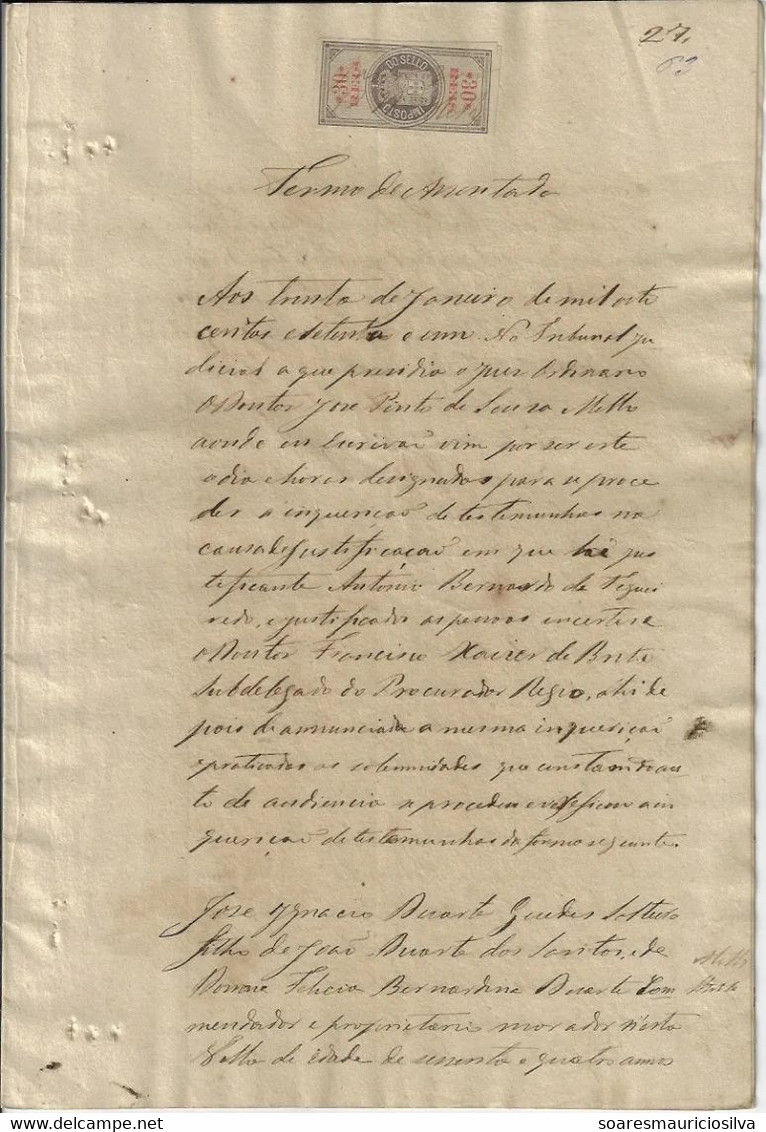 27,
63
30 REIS
IMPOSTO DO SELLO
30 REIS
Termo de Assentada
Aos trinta de Janeiro de mil oito
centos e setenta e um No Tribunal ju
dicial a que presidia o Juis Ordinario
o Doutor Jose Pinto de Sousa Mello
aonde eu Escrivaõ vim por ser este
o dia e horas designadas para se proce
der a inquiriçaõ de testemunhas na
causa de Justificaçaõ em que hé jus
tificante António Bernardo de Figuei
redo, e justificados as pessoas incertas e
o Doutor Francisco Xavier de Brito
Subdelegado do Procurador Regio, ahi de
pois de annunciada a mesma inquiriçaõ
e praticadas as solemnidades que constam do au
to de audiencia se procedeu e a in
quiriçaõ de testemunhas da forma seguinte.
Jose Ignacio Duarte Guedes solteiro
filho de Joaõ Duarte dos Santos, e de
Dona Felicia Bernardina Duarte Com
mendador e proprietario morador n'esta
Villa de idade de sessenta e quatro annos
soaresmauriciosilva